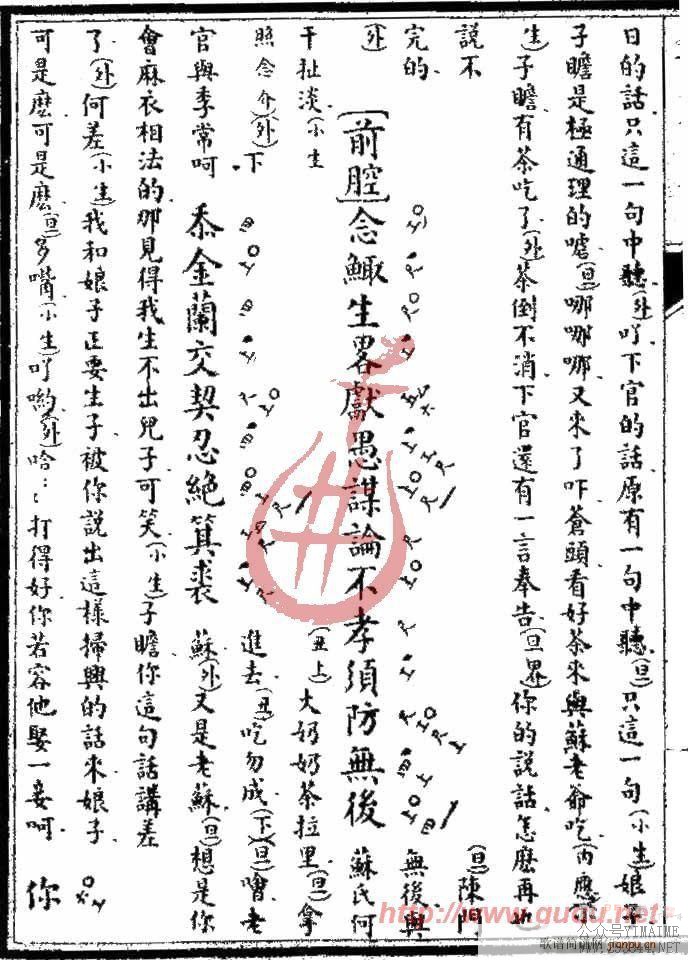 日的話只這一句中聽(外)吖下官的話原有一句中聽(旦)只這一句(小生)娘子
子瞻是極通理的噓(旦)哪哪哪又來了吓蒼頭看好茶來與蘇老爺吃(內應
生)子瞻有茶吃了(外)茶倒不消下官還有一言奉告(旦界)你的說話怎麽再
說不
完的
(旦)陳門
無後與
(外)
[前腔]念鯫生畧獻愚謀論不孝須防無後
蘇氏何
干扯淡(小生
(丑上)大奶奶茶拉里(旦)拿
照念介)(外)下
進去(丑)吃勿成(下)(旦)噲老
官與季常呵
忝金蘭交契忍絶箕裘
蘇(外)又是老蘇(旦)想是你
會麻衣相法的那見得我生不出兒子可笑(小生)子瞻你這句話講差
了(外)何差(小生)我和娘子正要生子被你説出這樣掃興的話來娘子
可是麽可是麽(旦)多嘴(小生)吖喲(外)哈:打得好你若容他娶一妾呵
你
http://www.guqu.net
公众号YIMAIME
歌谱简谱网 jianpu.cn